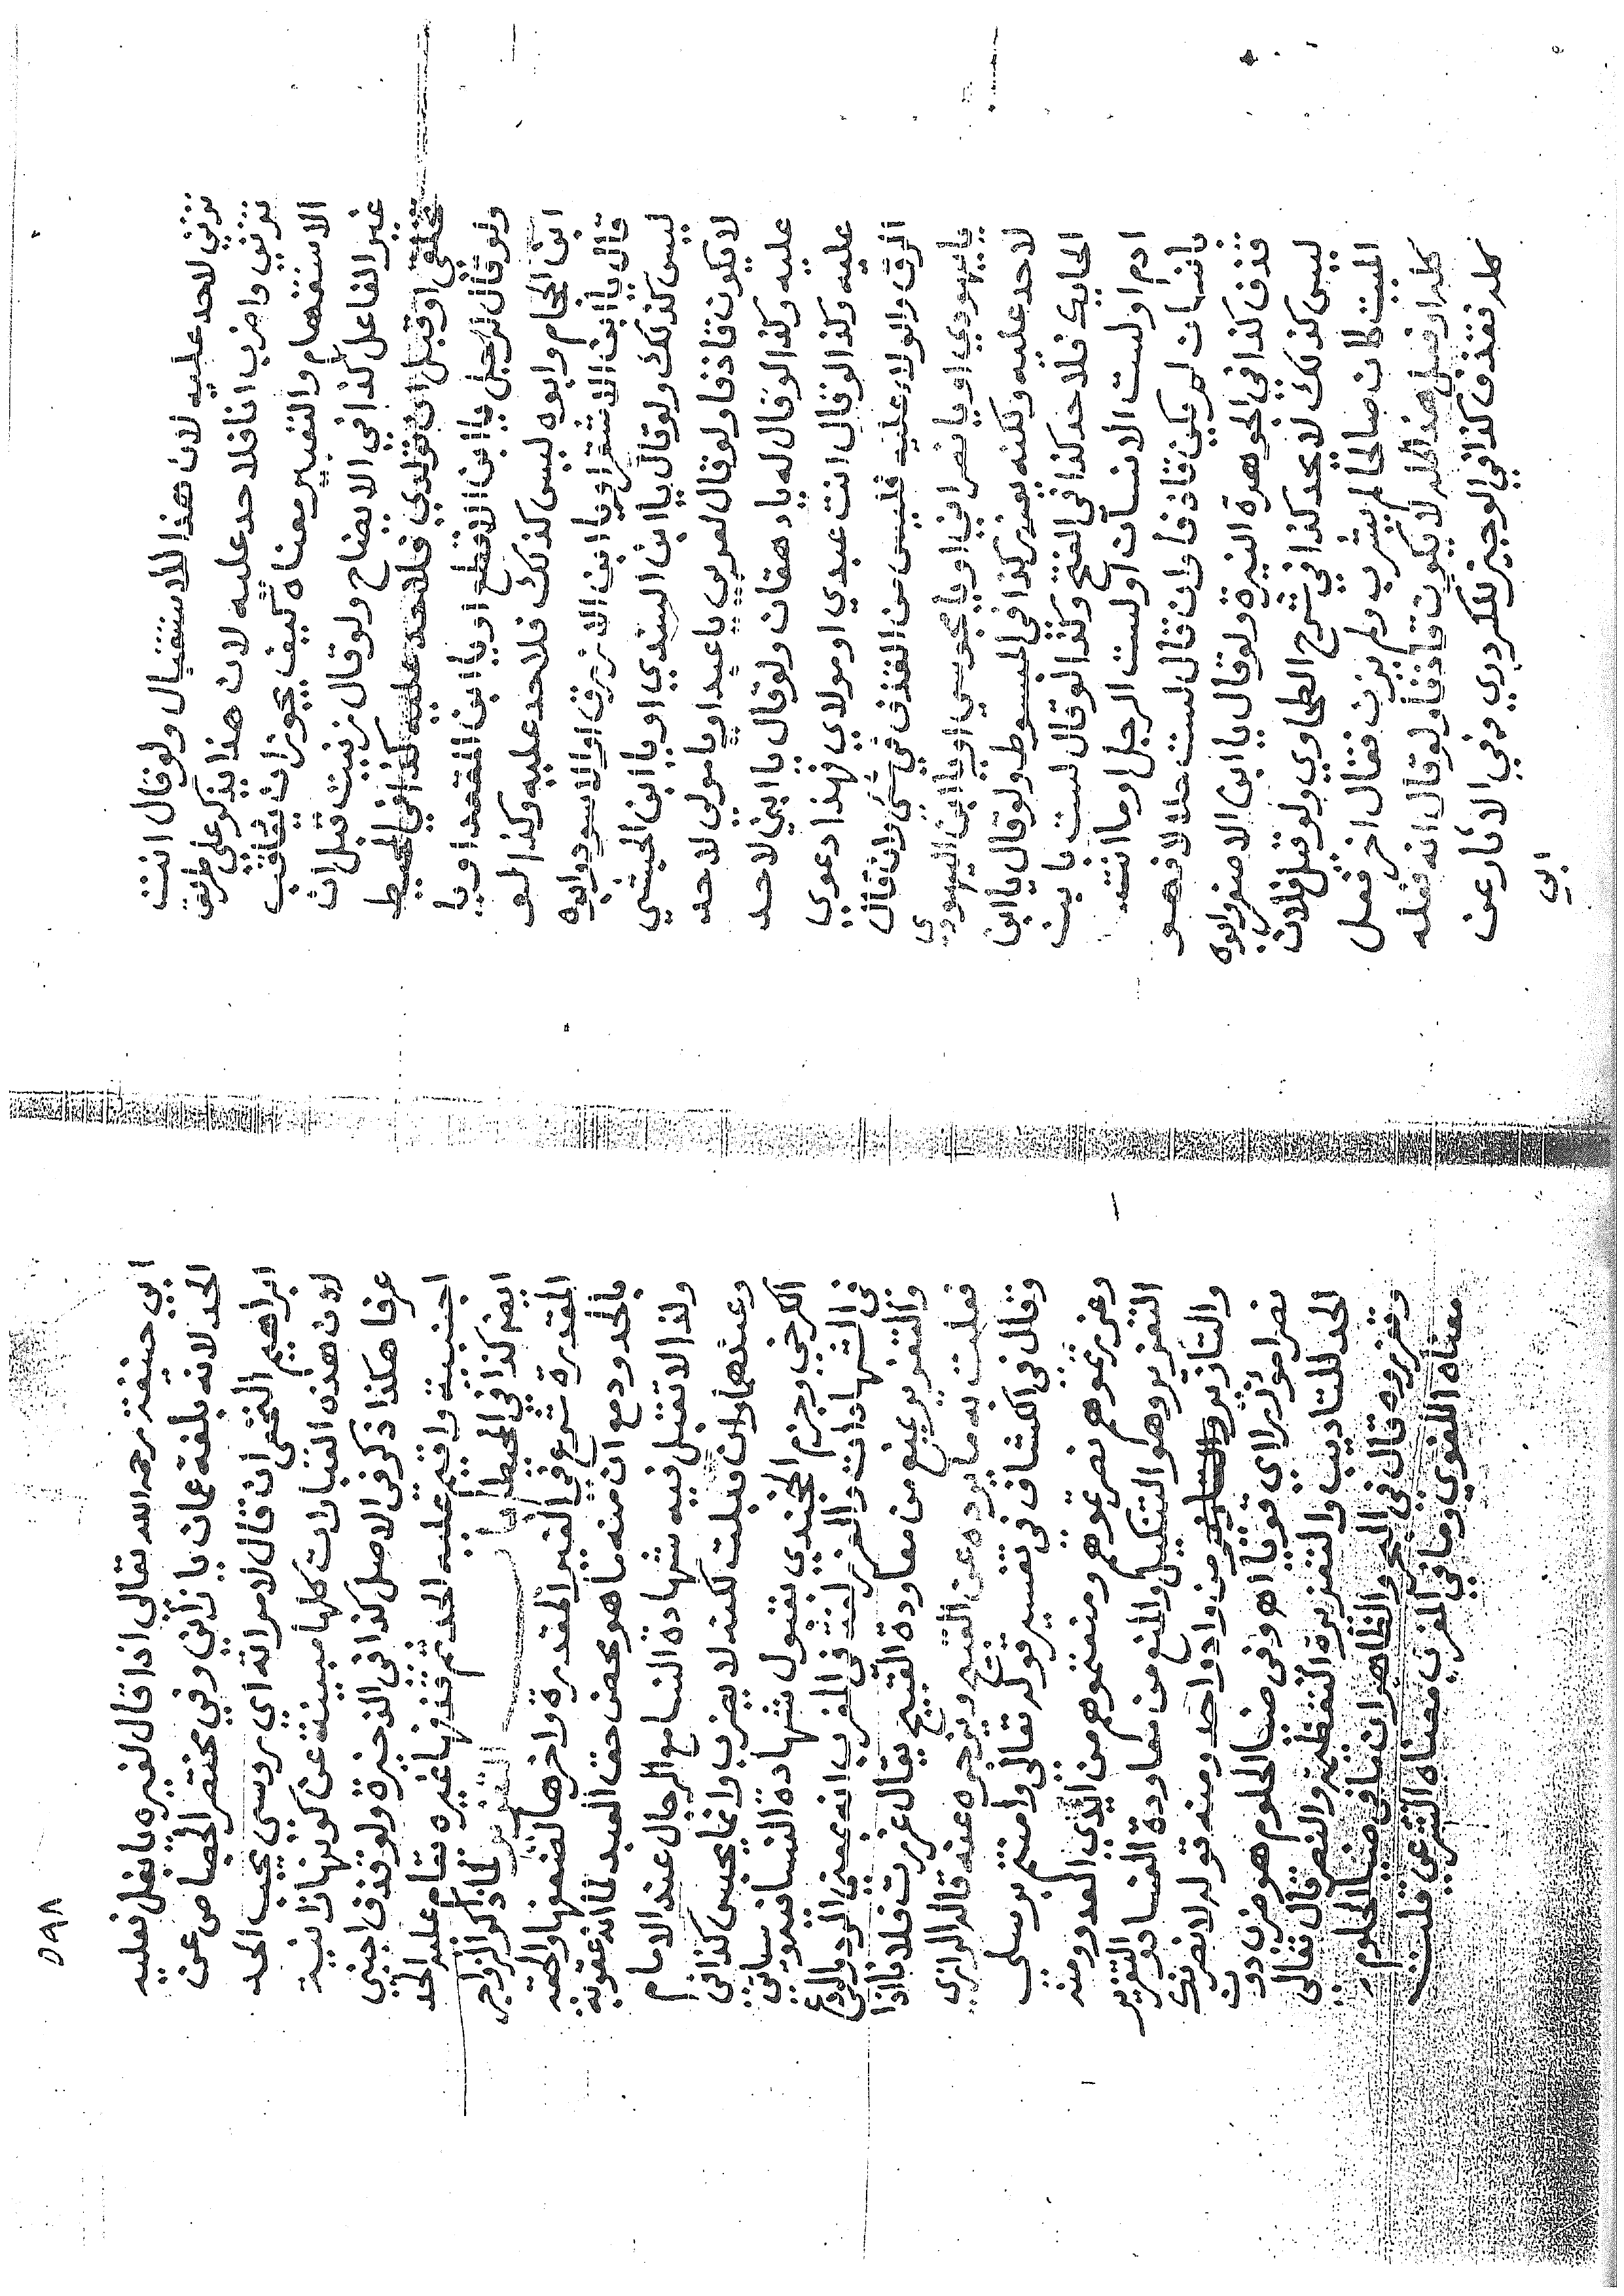 تزني لاحد عليه لان هذا للاستقبال ولو قال انت
تزني واضرب انا فلا حد عليه لان هذا يذكر على طريق
الاستفهام والتعيير معناه كيف يجوز ان يعاقب
غير الفاعل كذا في الايضاح ولو قال زنيت قبل ان
تخلقي او قبل ان تولدي فلا حد عليه كذا في المحيط
ولو قال لرجل يا ابن الاقطع او يا ابن المقعد او يا
ابن الحجام وابوه ليس كذلك فلا حد عليه وكذا لو
قال يا ابن الاشقر او يا ابن الازرق او الاسود وابوه
ليس كذلك ولو قال يا ابن السندي او يا ابن الحبشي
لا يكون قاذفا ولو قال لعربي يا عبد او يا مولى لاحد
عليه وكذا لو قال له يا دهقان ولو قال يا ابني لاحد
عليه وكذا لو قال انت عبدي او مولاي فهذا دعوى
الرق والولاء عليه فليس من القذف في شئ وان قال
يا يهودي او يا نصراني او يا مجوسي او يا ابن اليهودي
لا حد عليه ولكنه يعزر كذا في المبسوط ولو قال يا ابن
الحايك فلا حد كذا في الفتح وكذا لو قال لست بابن
ادم او لست الانسان او لست الرجل او ما انت
بانسان لم يكن قاذفا وان قال لست حلالا فهو
قذف كذا في الجوهرة النيرة ولو قال يا ابن الاصفر وابوه
ليس كذلك لا يحد كذا في شرح الطحاوي ولو قيل فلان
الميت كان صالحا لم يشرب ولم يزن فقال اخر فعل
كله او فعل هذا كله لا يكون قاذفا ولو قال انه فعله
كله فقذف كذا في الوجيز للكردري وفي الاثار عن
ابي
٥٩٨
ابي حنيفة رحمه الله تعالى اذا قال لغيره يا بغل فعليه
الحد لانه بلغة عمان يا زاني وفي مختصر الجصاص عن
ابراهيم النخعي ان قال لامراته اي روسي يجب الحد
لان هذه العبارات كلها مبينة عن كونها زانية
عرفا هكذا ذكر في الاصل كذا في الذخيرة ولو قذف اجنبي
اجنبية واقيم عليه الحد ثم قذفها غيره يقام عليه الحد
ايض كذا في المحيط التعزير لما ذكر الزواجر
المقدرة شرع في الغير المقدرة واخرها لضعفها والحقه
بالحدود مع ان منه ما هو محض حق العبد لما انه عقوبة
ولذا لا تقبل فيه شهادة النسا مع الرجال عند الامام
وعندهما وان قبلت لكنه لا يضرب وانما يحبس كذا في
الكرخي وجزم الخجندي بقبول شهادة النسا فيه وسياتي
في الشهادات والغرر لغة في المغرب انه بمعنى الرد والردع
والتعزير يمنع من معاودة القبيح يقال عزرت فلانا اذا
فعلت به ما يرده عن القبيح ويزجره عنه قاله الرازي
وقال في الكشاف في تفسير قوله تعالى وامنتم برسلي
وعزرتموهم نصرتموهم ومنعتموهم من ايدي العدو ومنه
التعزير وهو التنكيل والمنع من معاودة الفساد والتعزير
والتازير من واد واحد ومنه قوله لانصرنك
نصرا مؤزرا اي قويا اهـ وفي ضيا الحلوم هو ضرب دون
الحد للتاديب والتعزير التعظيم والنصر قال تعالى
وتعزروه قال في البحر والظاهر ان ما في ضيا الحلوم
معناه اللغوي وما في المغرب معناه الشرعي قلت